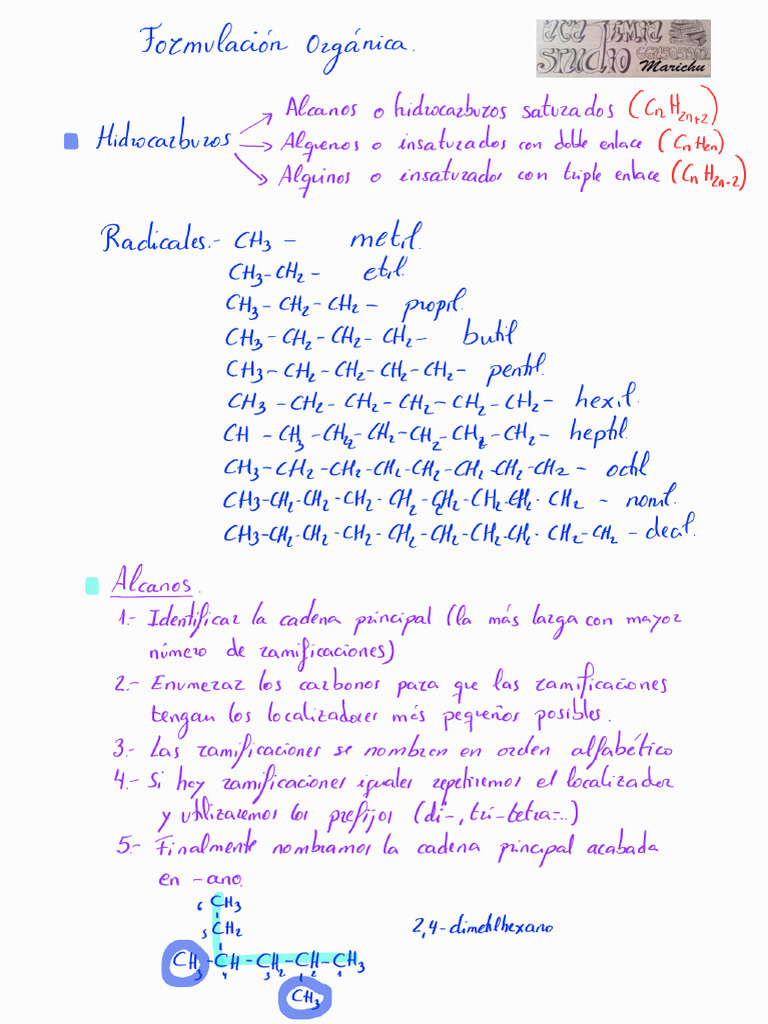 Formulación Orgánica.
ACADEMIA
STUDIO
Marichu
Hidrocarburos
Alcanos o hidrocarburos saturados (CnH2n+2)
Alquenos o insaturados con doble enlace (CnH2n)
Alquinos o insaturados con triple enlace (CnH2n-2)
Radicales.- CH3 – metil.
CH3-CH2- etil.
CH3-CH2-CH2- propil.
CH3-CH2-CH2-CH2- butil
CH3-CH2-CH2-CH2-CH2- pentil.
CH3-CH2-CH2-CH2-CH2-CH2- hexil.
CH-CH3-CH2-CH2-CH2-CH2-CH2- heptil.
CH3-CH2-CH2-CH2-CH2-CH2-CH2-CH2- octil
CH3-CH2-CH2-CH2-CH2-CH2-CH2-CH2-CH2- nonil.
CH3-CH2-CH2-CH2-CH2-CH2-CH2-CH2-CH2-CH2- decil.
Alcanos.
1.- Identificar la cadena principal (la más larga con mayor
número de ramificaciones)
2.- Enumerar los carbonos para que las ramificaciones
tengan los localizadores más pequeños posibles.
3.- Las ramificaciones se nombren en orden alfabético
4.- Si hay ramificaciones iguales repetiremos el localizador
y utilizaremos los prefijos (di-, tri-tetra-..)
5.- Finalmente nombramos la cadena principal acabada
en -ano.
6 CH3
5 CH2
2,4-dimetilhexano
CH3-CH-CH2-CH-CH3
4 3 2 1
CH3